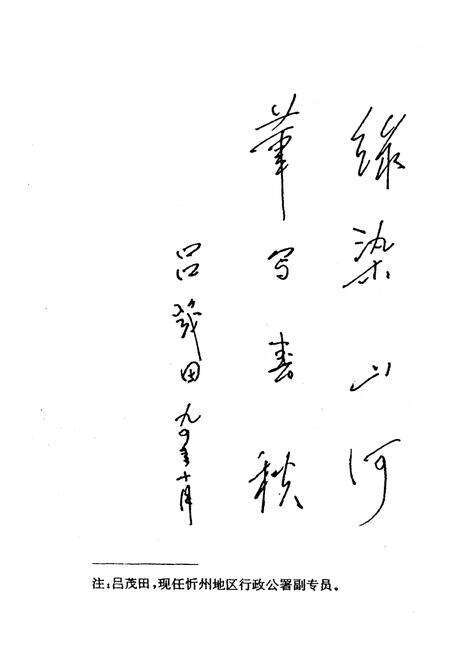 绿染山河
笔写春秋
吕茂田 九〇年十月
注:吕茂田,现任忻州地区行政公署副专员。